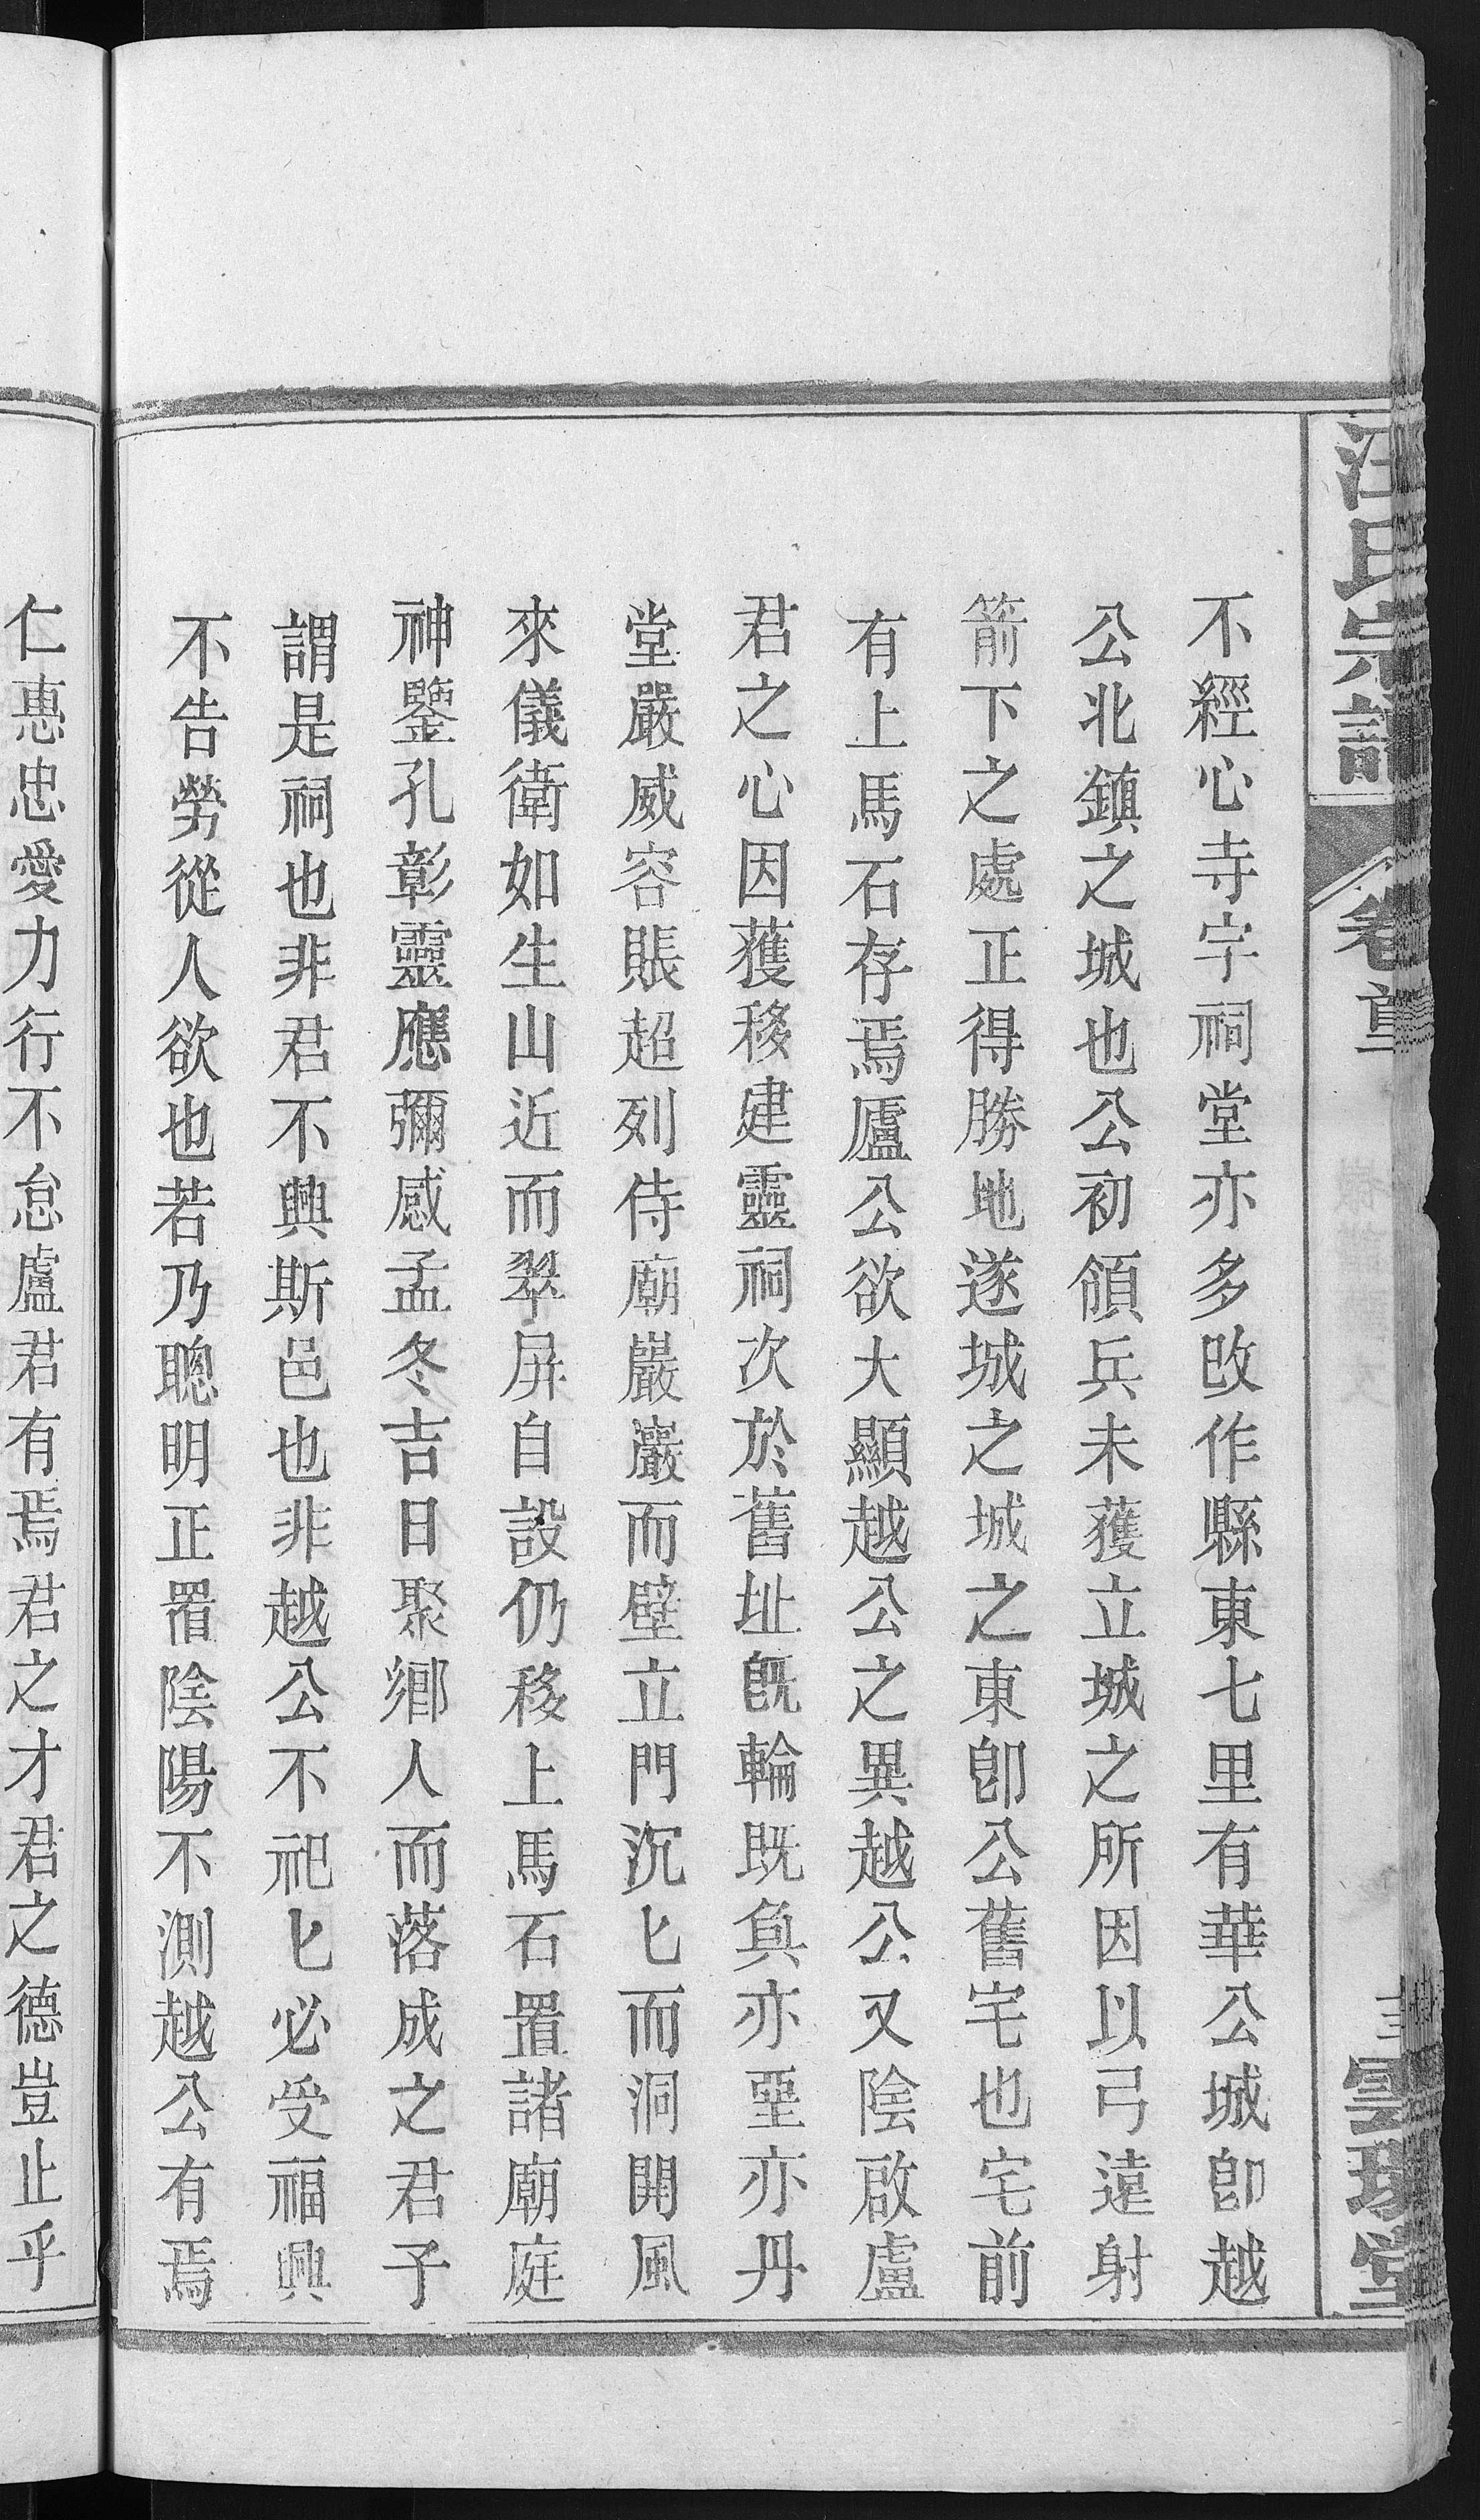 汪氏宗譜
卷首
雲瑞堂
不經心寺宇祠堂亦多改作縣東七里有華公城卽越
公北鎮之城也公初領兵未獲立城之所因以弓遠射
箭下之處正得勝地遂城之城之東卽公舊宅也宅前
有上馬石存焉廬公欲大顯越公之異越公又陰啟盧
君之心因獲移建靈祠次於舊址旣輪既奐亦堊亦丹
堂嚴威容賬超列侍廟巖巖而壁立門沉匕而洞開風
來儀衛如生山近而翠屏自設仍移上馬石置諸廟庭
神鑒孔彰靈應彌感孟冬吉日聚鄉人而落成之君子
謂是祠也非君不興斯邑也非越公不祀匕必受福興
不告勞從人欲也若乃聰明正君陰陽不測越公有焉
仁惠忠愛力行不怠盧君有焉君之才君之德豈止乎